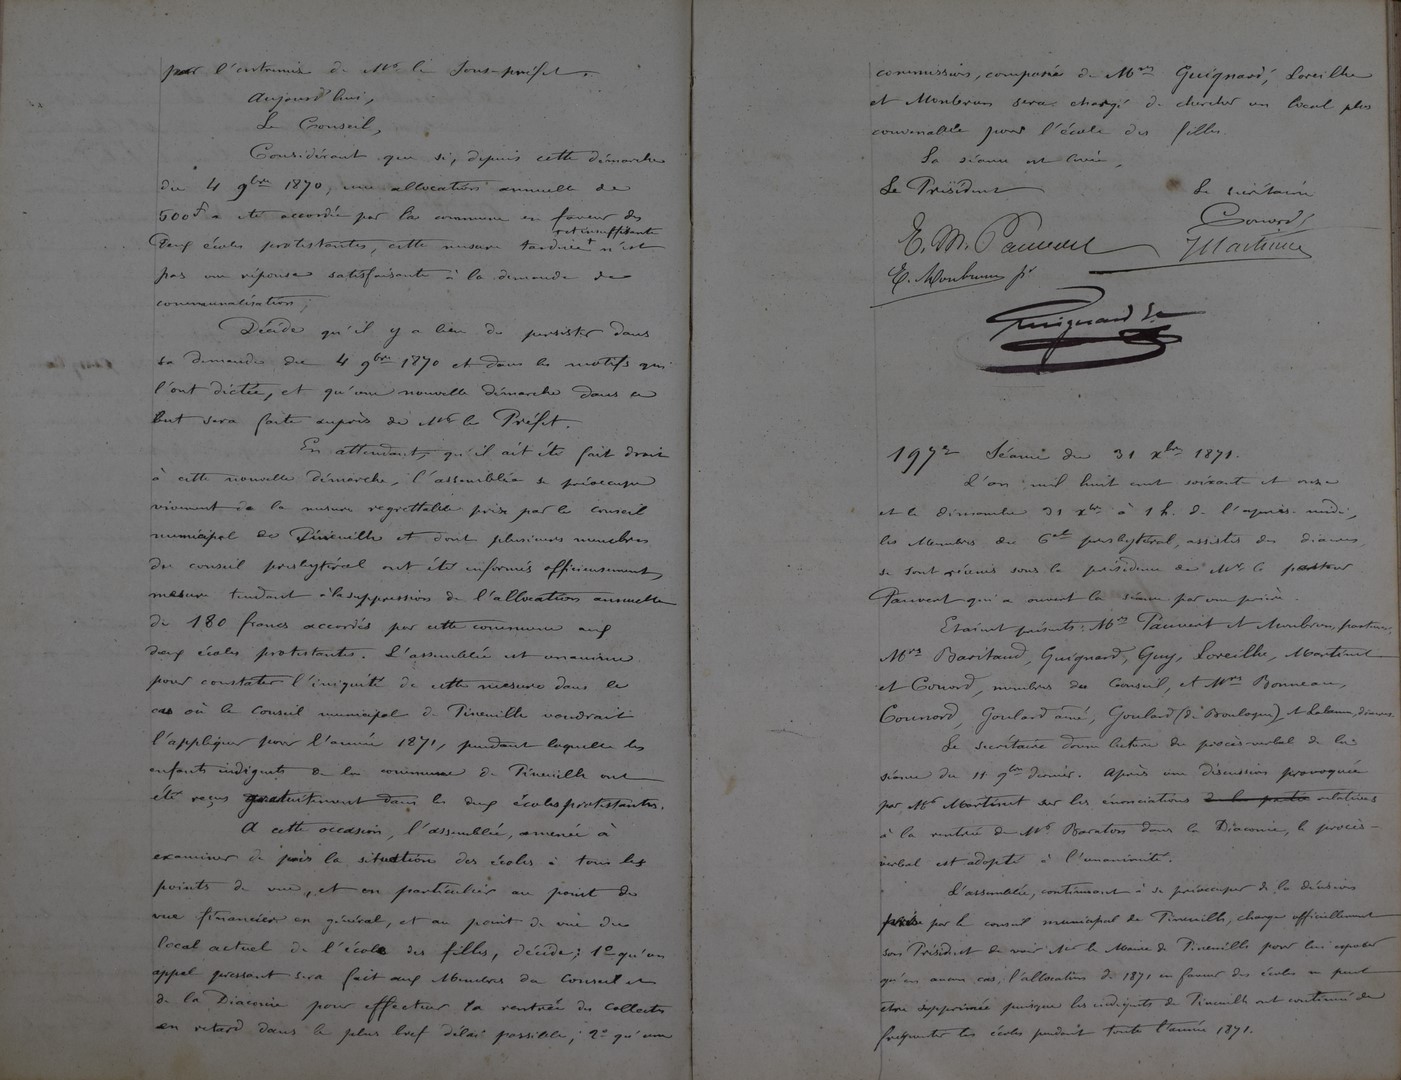 par l'entremise de Mr le Sous-préfet.
Aujourd'hui,
Le Conseil,
Considérant que si, depuis cette démarche
du 4 9bre 1870, une allocation annuelle de
500f a été accordée par la commune en faveur des
et insuffisante
deux écoles protestantes, cette mesure tardive n'est
pas une réponse satisfaisante à la demande de
communalisation;
Décide qu'il y a lieu de persister dans
sa demande du 4 9bre 1870 et dans les motifs qui
l'ont dictée, et qu'une nouvelle démarche dans ce
but sera faite auprès de Mr le Préfet.
En attendant, qu'il ait été fait droit
à cette nouvelle démarche, l'assemblée se préoccupe
vivement de la mesure regrettable prise par le conseil
municipal de Pineuilh et dont plusieurs membres
du conseil presbytéral ont été informés officieusement,
mesure tendant à la suppression de l'allocation annuelle
de 180 francs accordés par cette commune aux
deux écoles protestantes. L'assemblée est unanime
pour constater l'iniquité de cette mesure dans le
cas où le Conseil municipal de Pineuilh voudrait
l'appliquer pour l'année 1871, pendant laquelle les
enfants indigents de la commune de Pineuilh ont
été reçus gratuitement dans les deux écoles protestantes.
A cette occasion, l'assemblée, amenée à
examiner de près la situation des écoles à tous les
points de vue, et en particulier au point de
vue financier en général, et au point de vue du
local actuel de l'école des filles, décide: 1° qu'un
appel pressant sera fait aux Membres du Conseil et
de la Diaconie pour effectuer la rentrée des collectes
en retard dans le plus bref délai possible; 2° qu'une
commission, composée de Mrs Guignard, Loreilhe
et Monbrun sera chargé de chercher un local plus
convenable pour l'école des filles.
La séance est levée,
Le Président
Le secrétaire
Conord
E. M. Pauvert
Martinet
E. Monbrun pr
Guignard
197e Séance du 31 Xbre 1871.
L'an mil huit cent soixante et onze
et le dimanche 31 Xbre à 1 h. de l'après-midi,
les Membres du Cel presbytéral, assistés des diacres,
se sont réunis sous la présidence de Mr le pasteur
Pauvert qui a ouvert la séance par une prière.
Etaient présents: Mrs Pauvert et Monbrun, pasteurs,
Mrs Baritaud, Guignard, Guy, Loreilhe, Martinet
et Conord, membres du Conseil, et Mrs Bonneau,
Counord, Goulard aîné, Goulard (de Boulogne), et diacres.
Le secrétaire donne lecture du procès-verbal de la
séance du 11 9bre dernier. Après une discussion provoquée
par Mr Martinet sur les énonciations relatives
à la rentrée de Mr Baraton dans la Diaconie, le procès-
verbal est adopté à l'unanimité.
L'assemblée, continuant à se préoccuper de la décision
prise par le conseil municipal de Pineuilh, charge officiellement
son Président de voir Mr le Maire de Pineuilh pour lui exposer
qu'en aucun cas, l'allocation de 1871 en faveur des écoles ne peut
être supprimée puisque les indigents de Pineuilh ont continué de
fréquenter les écoles pendant toute l'année 1871.